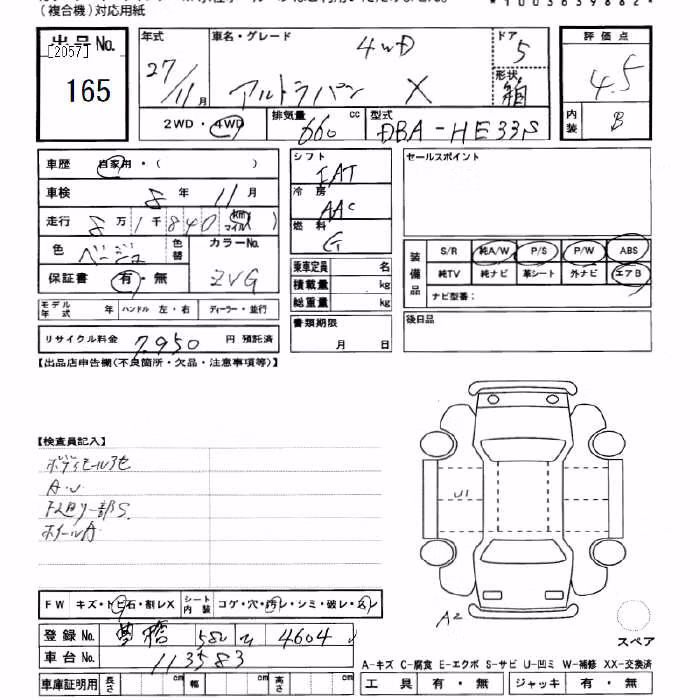 (複合機)対応用紙
*1003639882*
出品No.
[2057]
165
年式
27/11月
車名・グレード
4WD
アルトラパン X
ドア
5
形状
箱
評価点
4.5
内装
B
2WD・4WD
排気量
660 cc
型式
DBA-HE33S
車歴 自家用・( )
車検 8年 11月
走行 8万1千840 km マイル
色 ベージュ
色替
カラーNo.
ZVG
保証書 有・無
モデル年式 年 ハンドル 左・右 ディーラー・並行
リサイクル料金 7,950 円 預託済
シフト
FAT
冷房
AAC
燃料
G
乗車定員 名
積載量 kg
総重量 kg
書類期限
月 日
セールスポイント
装備品
S/R 純A/W P/S P/W ABS
純TV 純ナビ 革シート 外ナビ エアB
ナビ型番:
後日品
【出品店申告欄(不良箇所・欠品・注意事項等)】
【検査員記入】
A.U
ホイールA
U1
A2
スペア
FW キズ・トビ石・割レX
シート内装 コゲ・穴・汚レ・シミ・破レ・スレ
登録No. 豊橋 580 4604
車台No. 113583
車庫証明用 長さ cm 幅 cm 高さ cm
A-キズ C-腐食 E-エクボ S-サビ U-凹ミ W-補修 XX-交換済
工具 有・無 ジャッキ 有・無